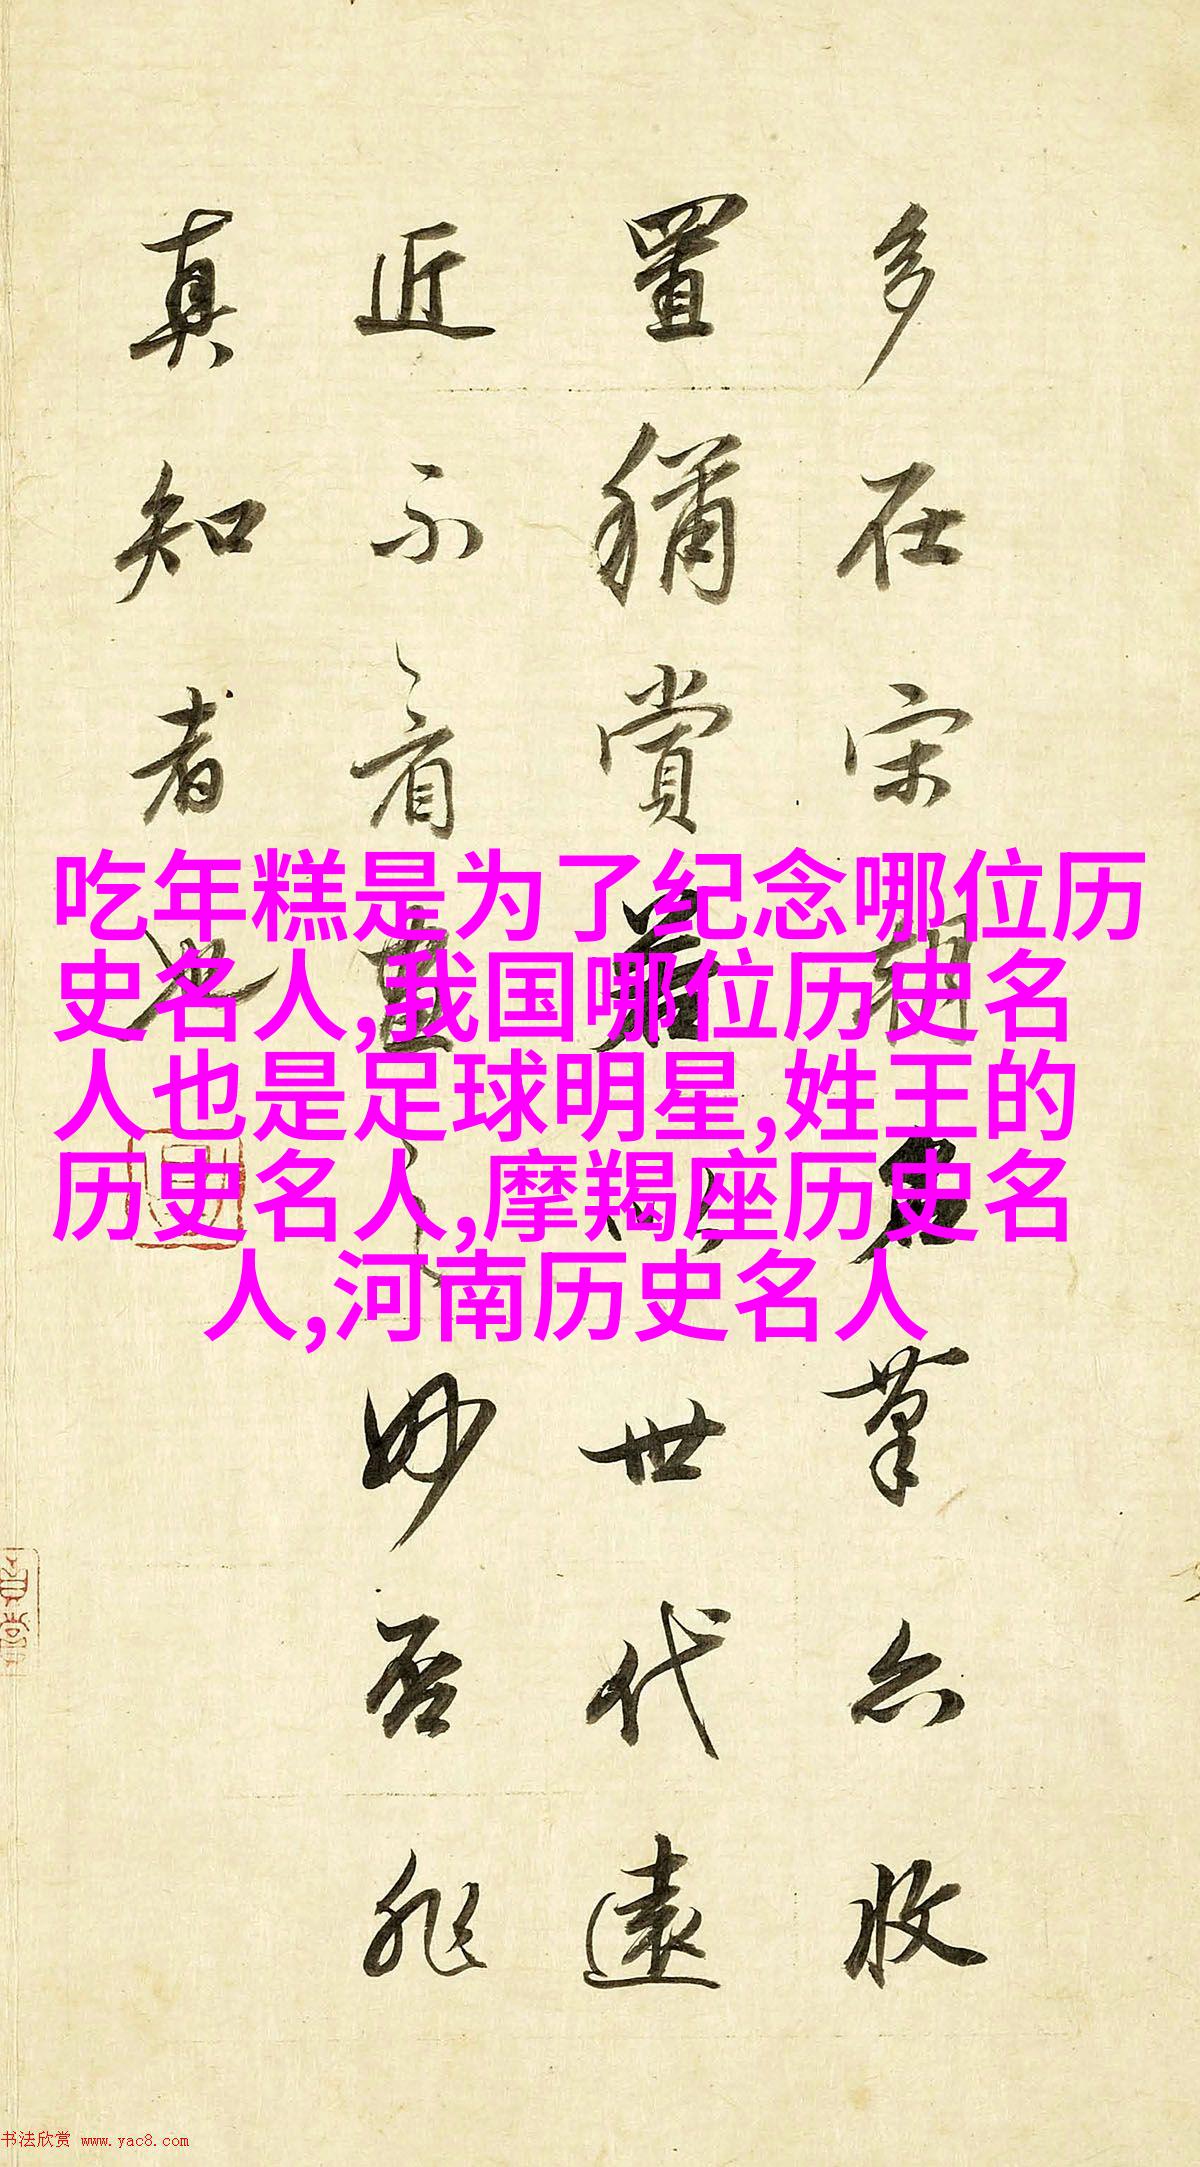 吃年糕是为了纪念哪位历
史名人,我国哪位历史名
人也是足球明星,姓王的
历史名人,摩羯座历史名
人,河南历史名人
多在宋朝名筆亦收
置稱賞若以世代遠
近不看畫之妙否非
真知者也
书法欣赏 www.yac8.com